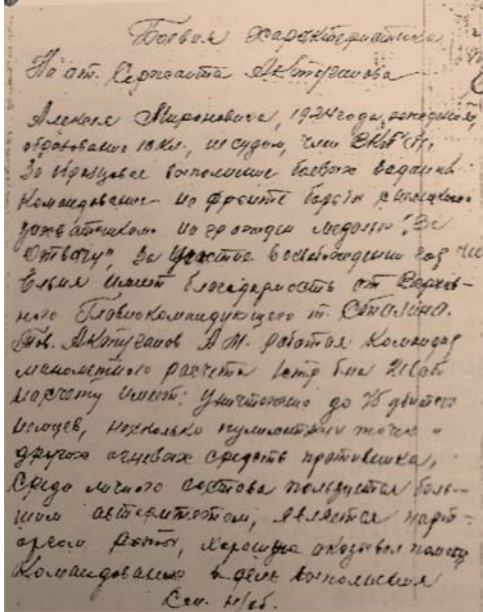 Боевая характеристика
На ст. Сержанта Актуганова
Алексея Мироновича, 1924 года рождения,
образование 10 кл., не судим, член ВКП(б),
За образцовое выполнение боевых заданий
Командования на фронте борьбы с немецкими
захватчиками награжден медалью "За
Отвагу", За участие в освобождении гор.
Ельня имеет благодарность от Верхов-
ного Главнокомандующего т. Сталина.
Тов. Актуганов А.М. работая Командир
минометного расчета 1 стр б-на
на счету имеет: уничтожено до 75
немцев, несколько пулеметных точек и
других огневых средств противника,
Среди личного состава пользуется боль-
шим авторитетом, является парт-
оргом роты, хорошую оказывал помощь
Командованию в деле выполнения